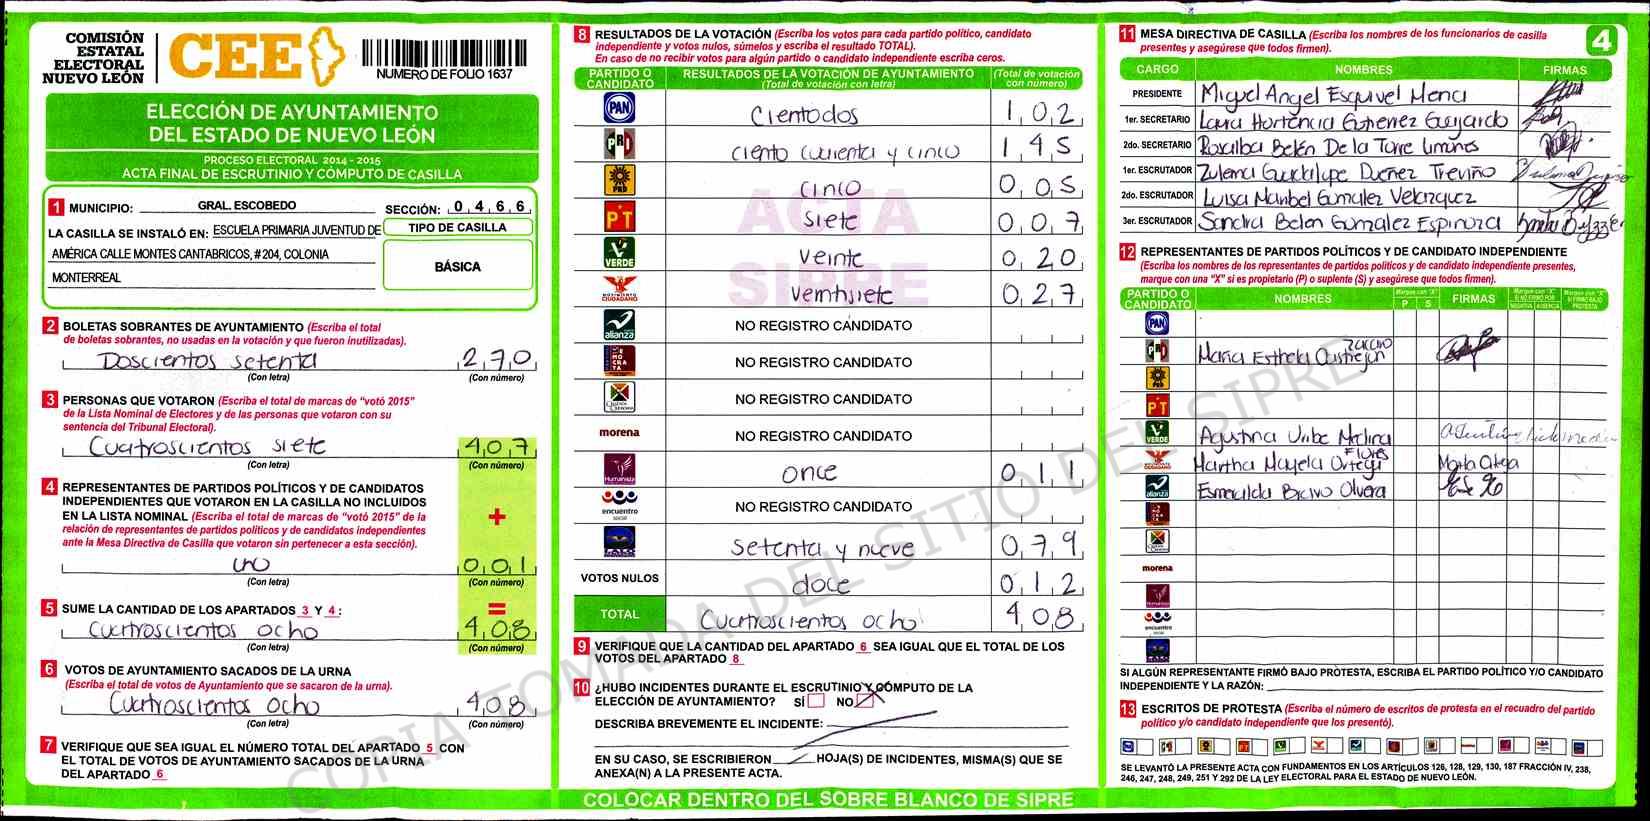 COMISIÓN
ESTATAL
ELECTORAL
NUEVO LEÓN
CEE
NUMERO DE FOLIO 1637
ELECCIÓN DE AYUNTAMIENTO
DEL ESTADO DE NUEVO LEÓN
PROCESO ELECTORAL 2014 - 2015
ACTA FINAL DE ESCRUTINIO Y CÓMPUTO DE CASILLA
1 MUNICIPIO: GRAL. ESCOBEDO SECCIÓN: 0 4 6 6
LA CASILLA SE INSTALÓ EN: ESCUELA PRIMARIA JUVENTUD DE
AMÉRICA CALLE MONTES CANTABRICOS, # 204, COLONIA
MONTERREAL
TIPO DE CASILLA
BÁSICA
2 BOLETAS SOBRANTES DE AYUNTAMIENTO (Escriba el total
de boletas sobrantes, no usadas en la votación y que fueron inutilizadas).
Doscientos setenta 2 7 0
(Con letra) (Con número)
3 PERSONAS QUE VOTARON (Escriba el total de marcas de “votó 2015”
de la Lista Nominal de Electores y de las personas que votaron con su
sentencia del Tribunal Electoral).
Cuatroscientos siete 4 0 7
(Con letra) (Con número)
4 REPRESENTANTES DE PARTIDOS POLÍTICOS Y DE CANDIDATOS
INDEPENDIENTES QUE VOTARON EN LA CASILLA NO INCLUIDOS
EN LA LISTA NOMINAL (Escriba el total de marcas de “votó 2015” de la
relación de representantes de partidos políticos y de candidatos independientes
ante la Mesa Directiva de Casilla que votaron sin pertenecer a esta sección).
+
uno 0 0 1
(Con letra) (Con número)
5 SUME LA CANTIDAD DE LOS APARTADOS 3 Y 4 : =
Cuatroscientos ocho 4 0 8
(Con letra) (Con número)
6 VOTOS DE AYUNTAMIENTO SACADOS DE LA URNA
(Escriba el total de votos de Ayuntamiento que se sacaron de la urna).
Cuatroscientos ocho 4 0 8
(Con letra) (Con número)
7 VERIFIQUE QUE SEA IGUAL EL NÚMERO TOTAL DEL APARTADO 5 CON
EL TOTAL DE VOTOS DE AYUNTAMIENTO SACADOS DE LA URNA
DEL APARTADO 6
8 RESULTADOS DE LA VOTACIÓN (Escriba los votos para cada partido político, candidato
independiente y votos nulos, súmelos y escriba el resultado TOTAL).
En caso de no recibir votos para algún partido o candidato independiente escriba ceros.
PARTIDO O CANDIDATO RESULTADOS DE LA VOTACIÓN DE AYUNTAMIENTO (Total de votación con letra) (Total de votación con número)
PAN Ciento dos 1 0 2
PRI ciento cuarenta y cinco 1 4 5
PRD cinco 0 0 5
PT siete 0 0 7
VERDE veinte 0 2 0
MOVIMIENTO CIUDADANO veintisiete 0 2 7
alianza NO REGISTRO CANDIDATO
DEMOCRATA NO REGISTRO CANDIDATO
NO REGISTRO CANDIDATO
morena NO REGISTRO CANDIDATO
Humanista once 0 1 1
encuentro social NO REGISTRO CANDIDATO
setenta y nueve 0 7 9
VOTOS NULOS doce 0 1 2
TOTAL Cuatroscientos ocho 4 0 8
ACTA
SIPRE
9 VERIFIQUE QUE LA CANTIDAD DEL APARTADO 6 SEA IGUAL QUE EL TOTAL DE LOS
VOTOS DEL APARTADO 8
10 ¿HUBO INCIDENTES DURANTE EL ESCRUTINIO Y CÓMPUTO DE LA
ELECCIÓN DE AYUNTAMIENTO? SÍ NO
DESCRIBA BREVEMENTE EL INCIDENTE:
EN SU CASO, SE ESCRIBIERON HOJA(S) DE INCIDENTES, MISMA(S) QUE SE
ANEXA(N) A LA PRESENTE ACTA.
COLOCAR DENTRO DEL SOBRE BLANCO DE SIPRE
11 MESA DIRECTIVA DE CASILLA (Escriba los nombres de los funcionarios de casilla
presentes y asegúrese que todos firmen).
4
CARGO NOMBRES FIRMAS
PRESIDENTE Miguel Angel Esquivel Mena
1er. SECRETARIO Laura Hortencia Gutierrez Guajardo
2do. SECRETARIO Rosalba Belén De la Torre Limones
1er. ESCRUTADOR Zulema Guadalupe Dueñez Treviño
2do. ESCRUTADOR Luisa Maribel Gonzalez Velazquez
3er. ESCRUTADOR Sandra Belen Gonzalez Espinoza
12 REPRESENTANTES DE PARTIDOS POLÍTICOS Y DE CANDIDATO INDEPENDIENTE
(Escriba los nombres de los representantes de partidos políticos y de candidato independiente presentes,
marque con una “X” si es propietario (P) o suplente (S) y asegúrese que todos firmen).
PARTIDO O CANDIDATO NOMBRES Marque con “X” P S FIRMAS Marque con “X” SI NO FIRMÓ POR NEGATIVA AUSENCIA Marque con “X” SI FIRMÓ BAJO PROTESTA
PAN
PRI Maria Esthela
PRD
PT
VERDE Agustina Uribe Medina
MOVIMIENTO CIUDADANO Martha Mayela Ortega Flores Marta Ortega
alianza Esmeralda Bravo Olvera
DEMOCRATA
morena
Humanista
encuentro social
SI ALGÚN REPRESENTANTE FIRMÓ BAJO PROTESTA, ESCRIBA EL PARTIDO POLÍTICO Y/O CANDIDATO
INDEPENDIENTE Y LA RAZÓN:
13 ESCRITOS DE PROTESTA (Escriba el número de escritos de protesta en el recuadro del partido
político y/o candidato independiente que los presentó).
SE LEVANTÓ LA PRESENTE ACTA CON FUNDAMENTOS EN LOS ARTÍCULOS 126, 128, 129, 130, 187 FRACCIÓN IV, 238,
246, 247, 248, 249, 251 Y 292 DE LA LEY ELECTORAL PARA EL ESTADO DE NUEVO LEÓN.
COPIA TOMADA DEL SITIO DEL SIPRE